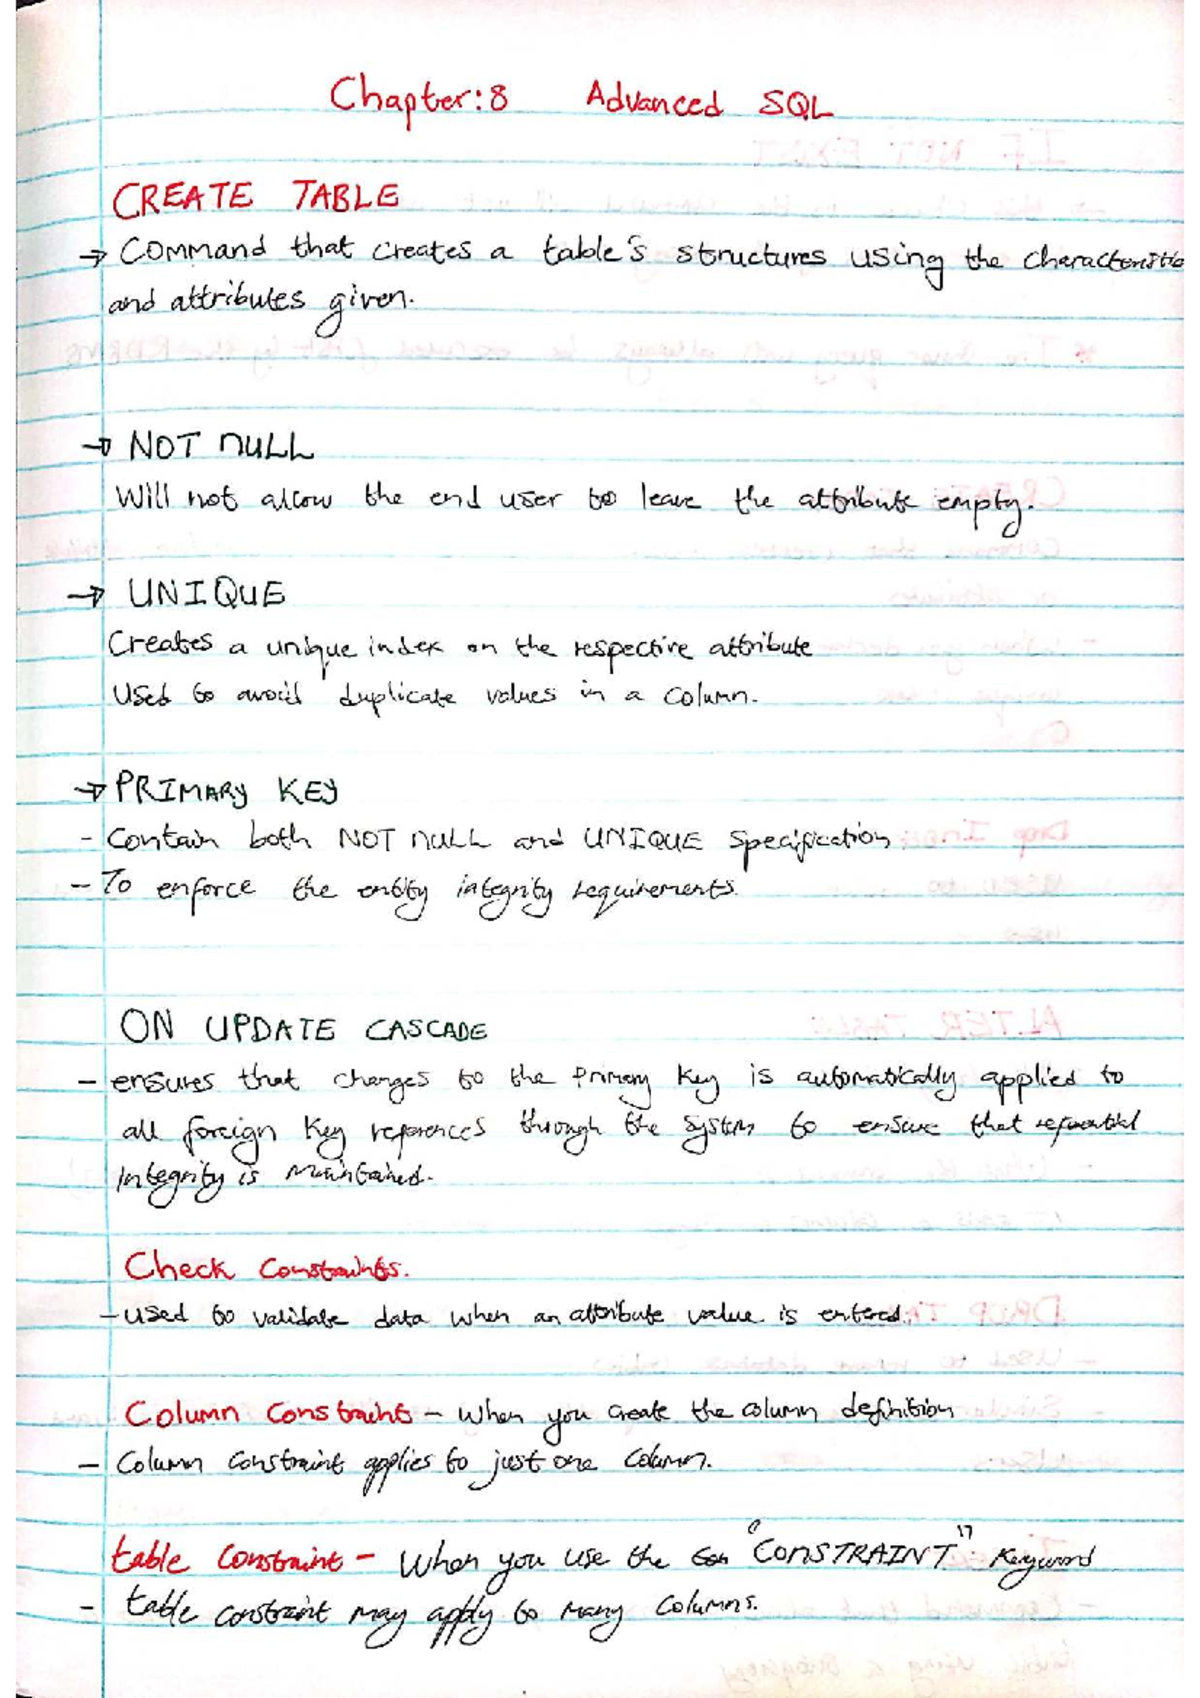 Chapter:8 Advanced SQL
CREATE TABLE
→ Command that creates a table's structures using the characteristic
and attributes given.
→ NOT NULL
Will not allow the end user to leave the attribute empty.
→ UNIQUE
Creates a unique index on the respective attribute
Used to avoid duplicate values in a column.
→ PRIMARY KEY
- Contain both NOT NULL and UNIQUE specification.
- To enforce the entity integrity requirements.
ON UPDATE CASCADE
- ensures that changes to the Primary Key is automatically applied to
all foreign Key references through the system to ensure that referential
integrity is maintained.
Check Constraints.
- Used to validate data when an attribute value is entered.
Column Constraint - When you create the column definition
- Column constraint applies to just one column.
table Constraint - When you use the "CONSTRAINT" Keyword
- table constraint may apply to many columns.